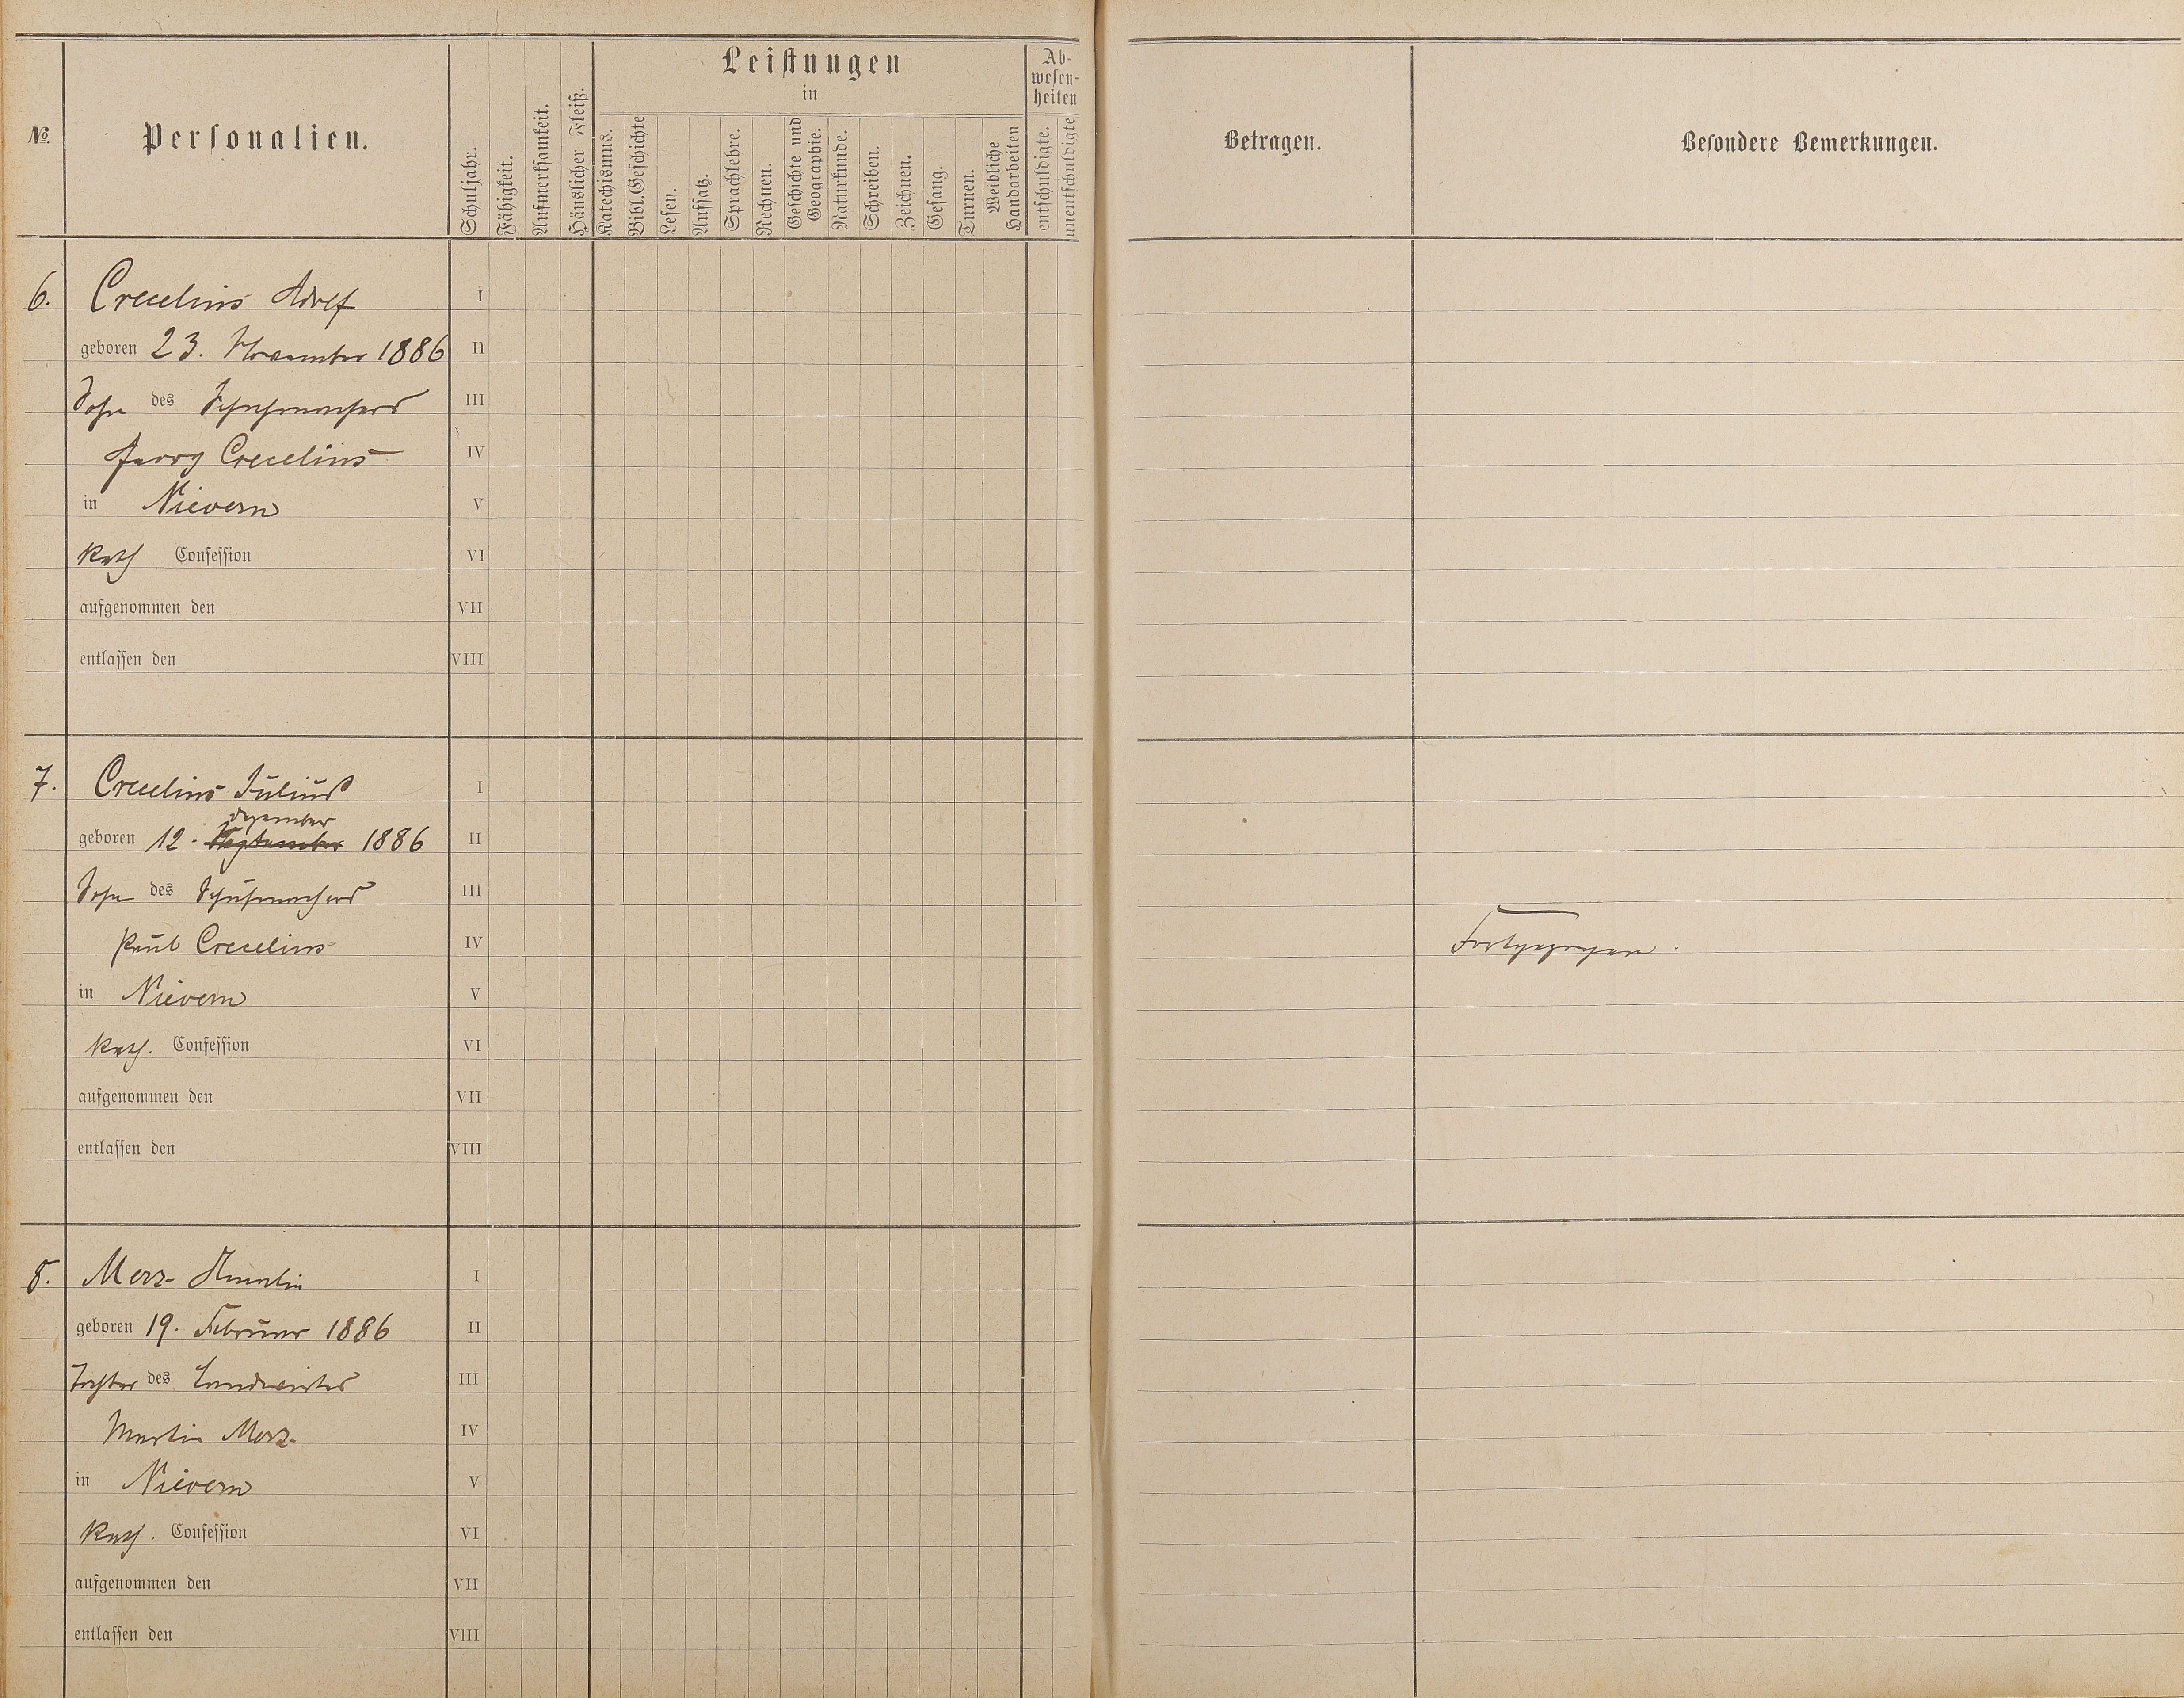 №.
Personalien.
Schuljahr.
Fähigkeit.
Aufmerksamkeit.
Häuslicher Fleiß.
Leistungen
in
Katechismus.
Bibl. Geschichte
Lesen.
Aufsatz.
Sprachlehre.
Rechnen.
Geschichte und
Geographie.
Naturkunde.
Schreiben.
Zeichnen.
Gesang.
Turnen.
Weibliche
Handarbeiten
Ab-
wesen-
heiten
entschuldigte.
unentschuldigte
Betragen.
Besondere Bemerkungen.
6. Crecelius Adolf I
geboren 23. November 1886 II
Sohn des Schuhmachers III
Georg Crecelius IV
in Nievern V
Kath Confession VI
aufgenommen den VII
entlassen den VIII
7. Crecelius Julius I
Dezember
geboren 12. September 1886 II
Sohn des Schuhmachers III
Paul Crecelius IV Fortgezogen.
in Nievern V
Kath. Confession VI
aufgenommen den VII
entlassen den VIII
8. Merz Amalia I
geboren 19. Februar 1886 II
Tochter des Landwirtes III
Martin Merz. IV
in Nievern V
Kath. Confession VI
aufgenommen den VII
entlassen den VIII